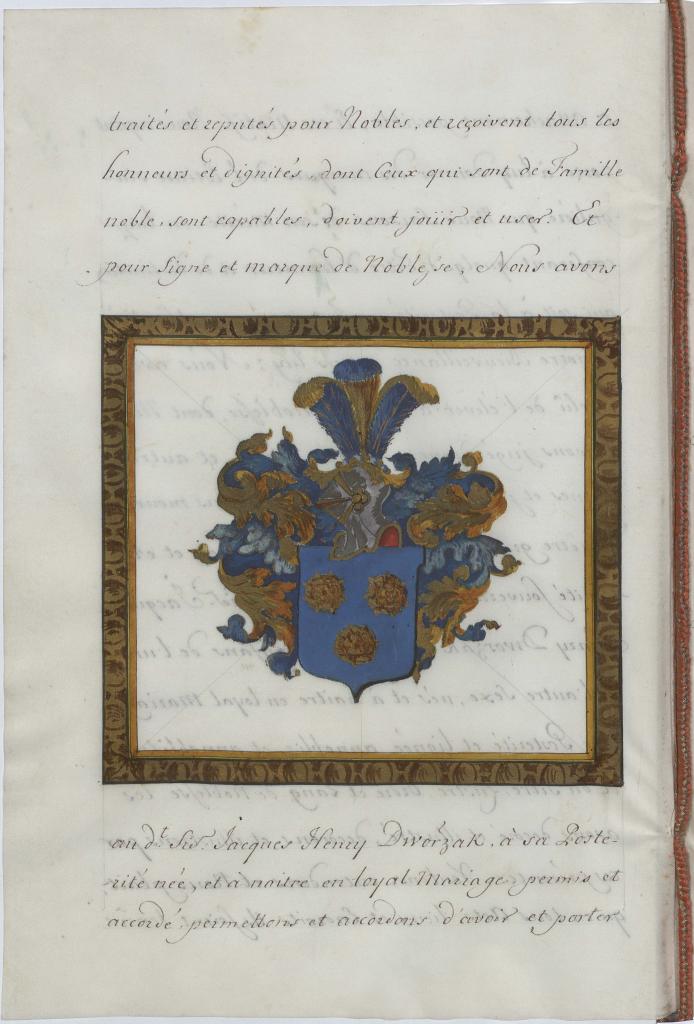 traités et reputés pour Nobles, et reçoivent tous les
honneurs et dignités, dont Ceux qui sont de Famille
noble, sont capables, doivent joüir et user. Et
pour Signe et marque de Noblesse, Nous avons
au dt. Sr. Jacques Henry Dworżak, à sa Poste-
rité née, et a naitre en loyal Mariage permis et
accordé permettons et accordons d'avoir et porter